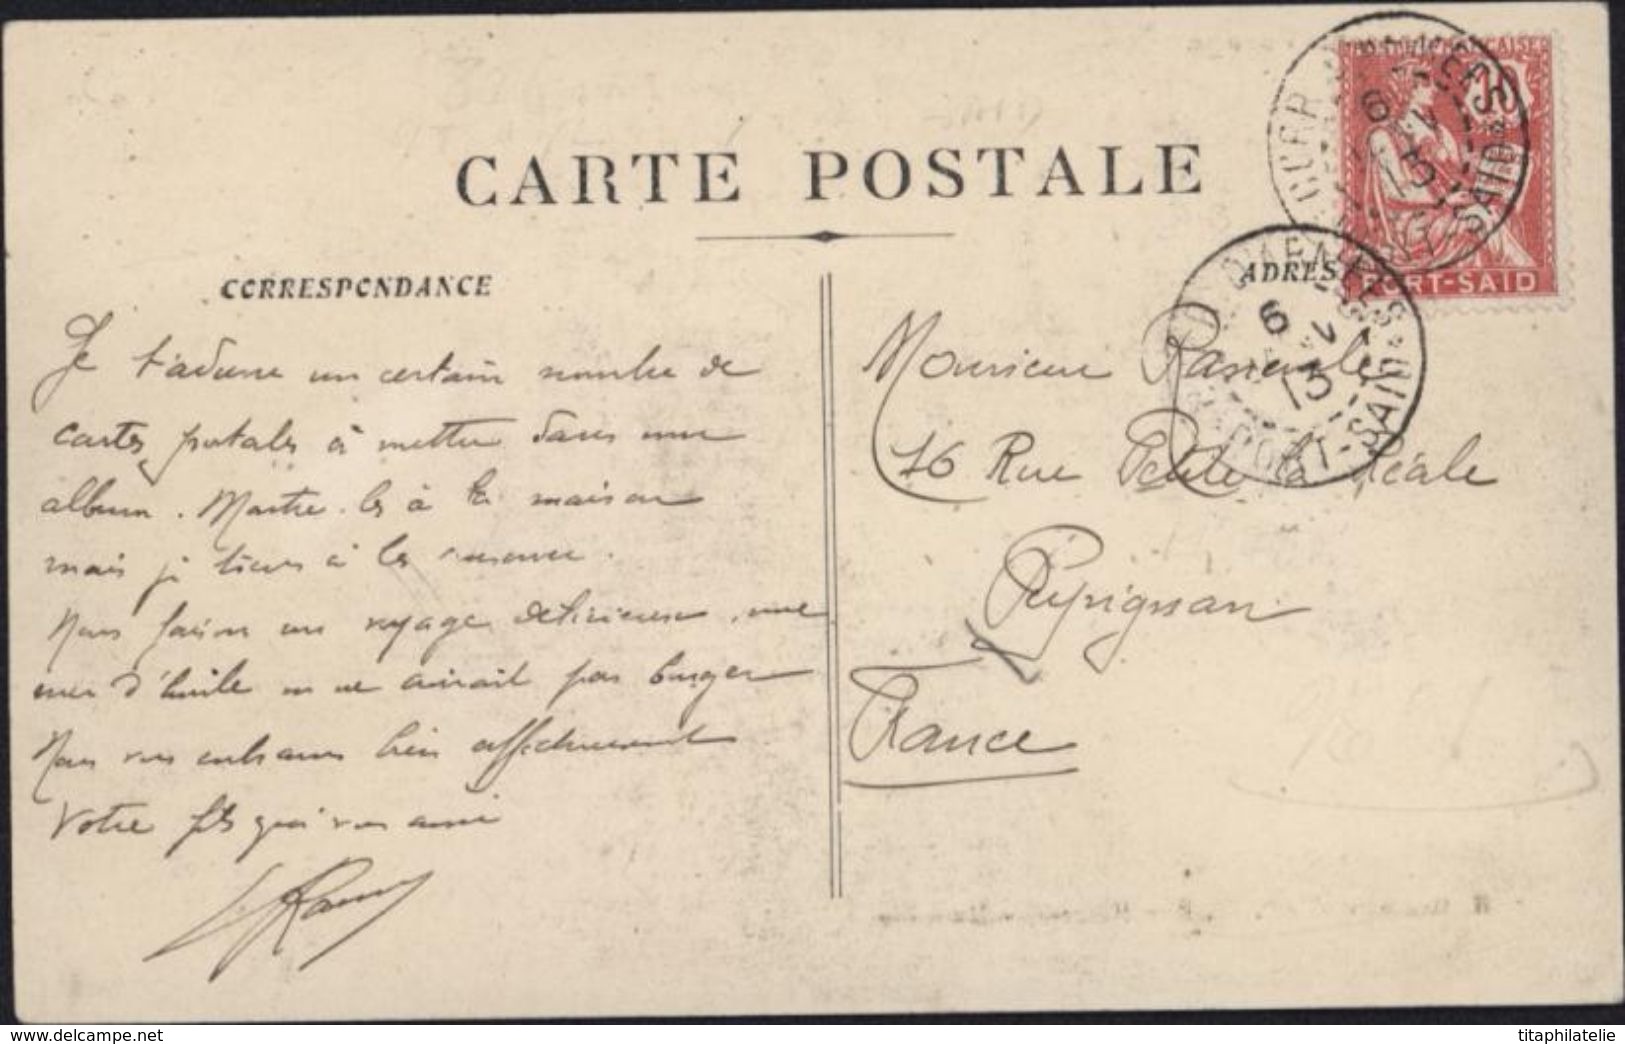 CARTE POSTALE
CORRESPONDANCE
ADRES
POSTE FRANÇAISE
10
PORT-SAID
6
13
PORT-SAID
6
13
PORT-SAID
Je t'adresse un certain nombre de
cartes postales à mettre dans un
album. Montre-les à la maison
mais je tiens à les conserver.
Nous faisons un voyage délicieux, une
mer d'huile on ne croirait pas bouger
Nous vous embrassons bien affectueusement
Votre fils qui vous aime
Monsieur
16 Rue Petite la Réale
Perpignan
France
delcampe.net
titaphilatelie